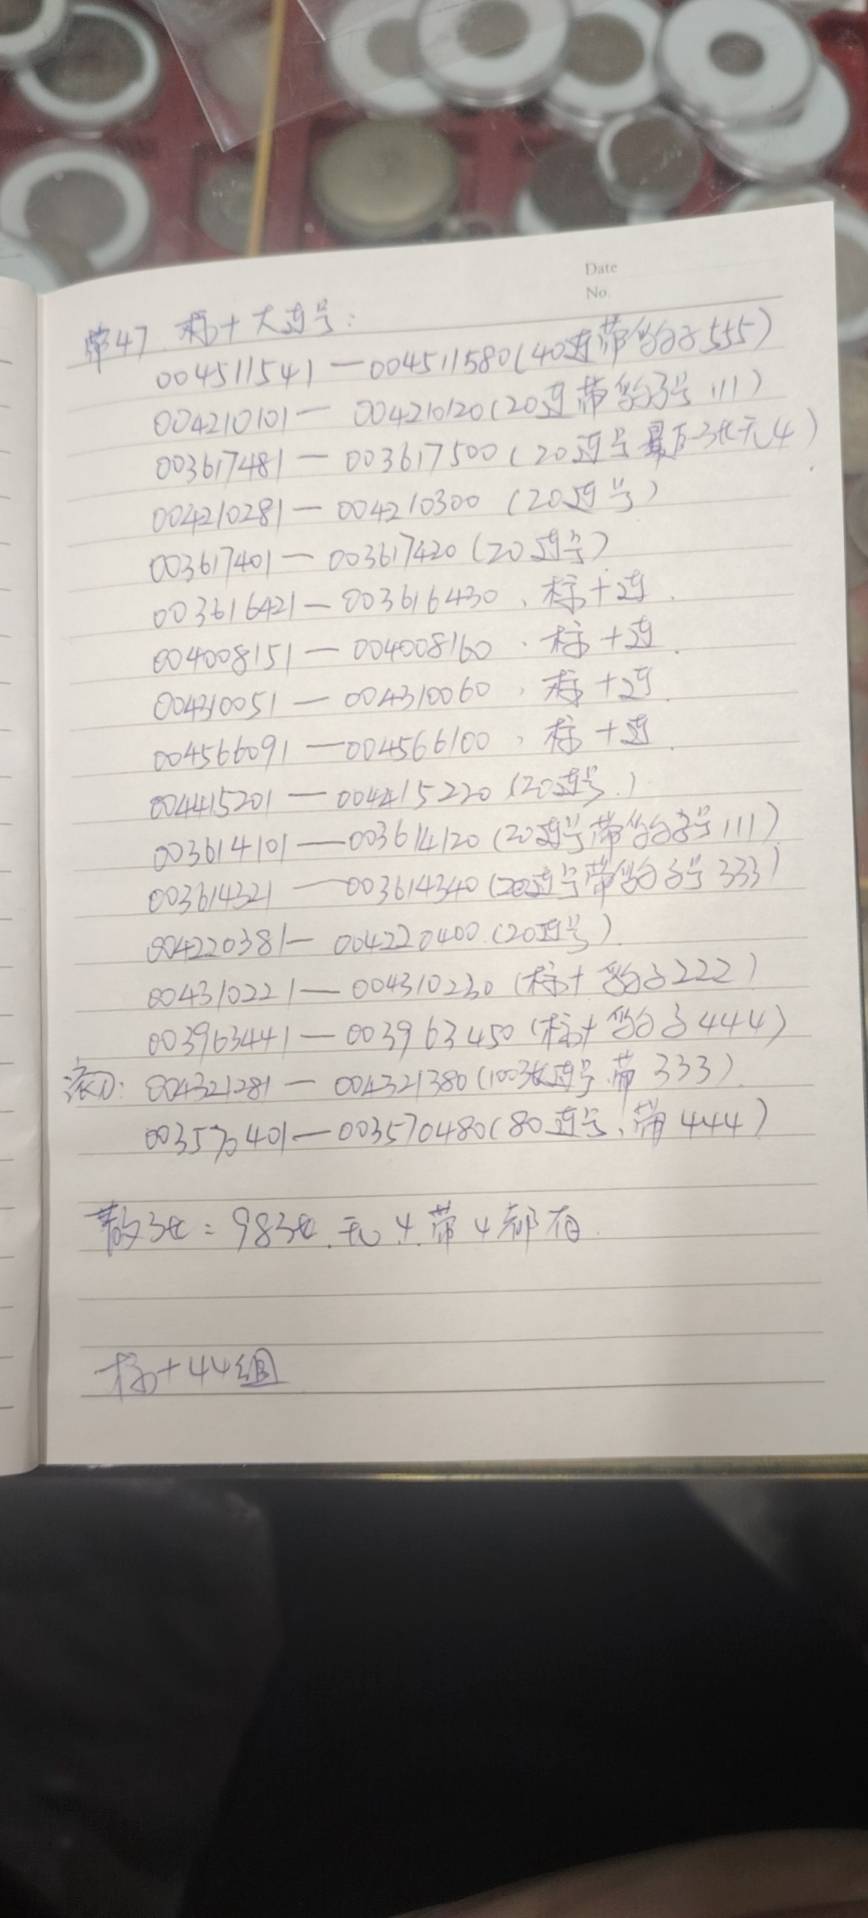 Date
No.
带47 标十大连号:
004511541—004511580(40连带豹子555)
004210101— 004210120(20连带豹子号111)
003617481— 003617500(20连号最后一张无4)
004210281— 004210300 (20连号)
003617401— 003617420 (20连号)
003616421— 003616430. 标十连.
004008151— 004008160. 标十连.
004310051— 004310060. 标十连.
004566091—004566100. 标十连.
004415201—004415220 (20连号.)
003614101—003614120(20连号带豹子号111)
003614321—003614340(20连号带豹子号333)
004220381—004220400(20连号)
004310221—004310230(标十豹子222)
003963441—003963450(标十豹子444)
004321281—004321380(100张连号.带333)
003570401—003570480(80连号,带444)
散张:98张.无4.带4都有.
标十44组